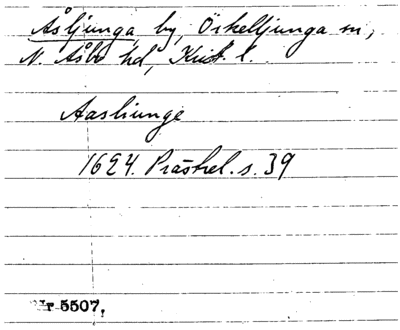 Åsljunga by, Örkelljunga sn,
N. Åsbo hd, Krist. l.
Aasliunge
1624. Prästrel. s. 39
Nr 5507.